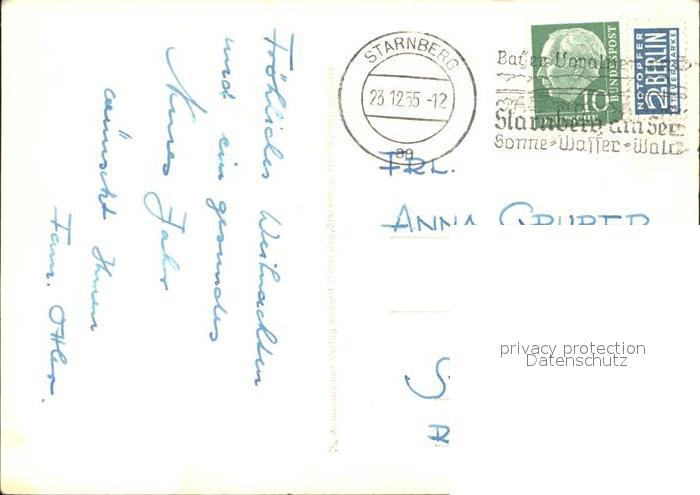 Fröhliches Weihnachten
und ein gesundes
Neues Jahr
wünscht Ihnen
Fam. Ottler.
STARNBERG
23.12.55-12
10
BUNDESPOST
NOTOPFER
2 BERLIN
STEUERMARKE
Starnberg am See
Sonne-Wasser-Wald
FRL.
ANNA GRUBER
privacy protection
Datenschutz